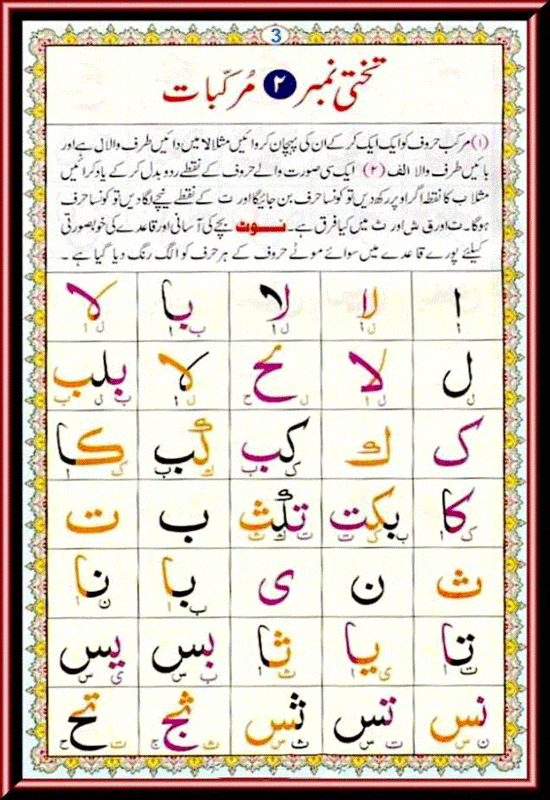 3
تختی نمبر ۲ مُرکّبات
(۱) مرکب حروف کو ایک ایک کر کے ان کی پہچان کروائیں مثلا لا میں دائیں طرف والا ل ہے اور
بائیں طرف والا الف (۲) ایک سی صورت والے حروف کے نقطے ردو بدل کر کے یاد کرائیں
مثلا ب کا نقطہ اگر اوپر رکھ دیں تو کونسا حرف بن جائیگا اور ت کے نقطے نیچے لگا دیں تو کونسا حرف
ہوگا۔ ت اور ق ش اور ث میں کیا فرق ہے۔ نوٹ بچے کی آسانی اور قاعدے کی خوبصورتی
کیلئے پورے قاعدے میں سوائے موٹے حروف کے ہر حرف کو الگ رنگ دیا گیا ہے۔
ا لا لا با لا
ا ل ا ل ا ب ا ل ا
ل لا لح لا بلب
ل ل ا ل ح ل ا ب ل ب
ک ك کب كب كا
ک ک ب ك ب ک ا
کا بکت تلث ب ت
ک ا ب ک ت
ث ن ی با نا
ب ا ن ا
تا یا ثا بس یس
ت ا ی ا ث ا ب س ی س
نس تس ثس ثج تح
ن س ت س ث س ث ج ت ح